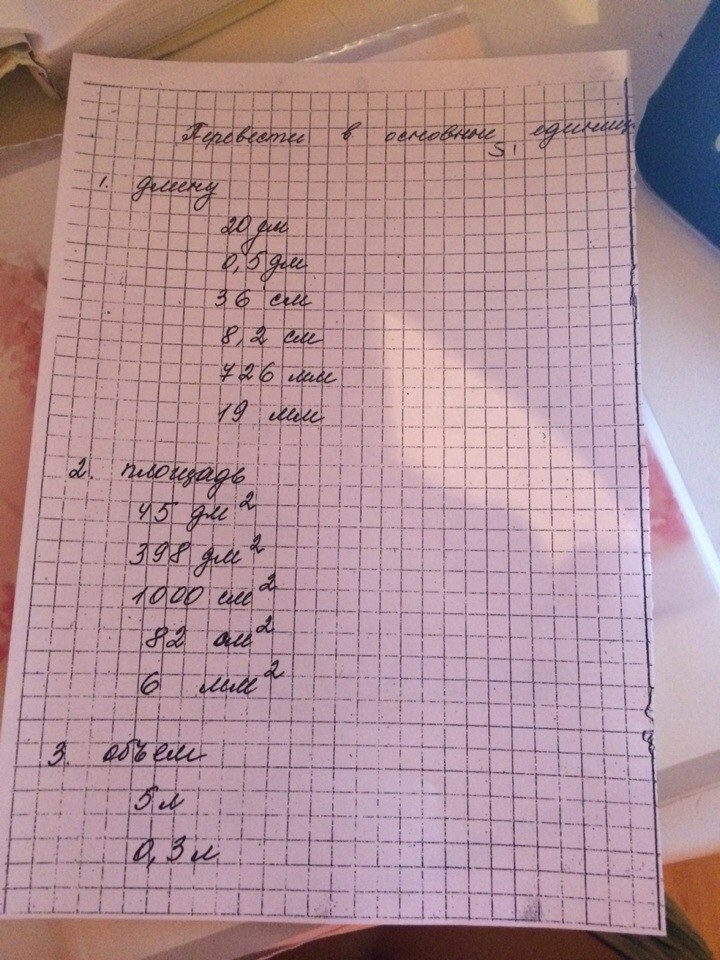 Перевести в основные единиц
SI
1. длину
20 дм
0,5 дм
36 см
8,2 см
726 мм
19 мм
2. площадь
45 дм²
398 дм²
1000 см²
82 см²
6 мм²
3. объем
5 л
0,3 л